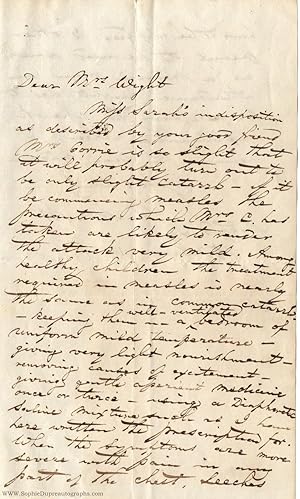 Dear Mrs. Wight
Miss Sarah's indisposition
as described by your good friend
Mrs Corrie is so slight that
it will probably turn out to
be only slight Catarrh - if it
be commencing measles the
precautions which Mrs C. has
taken are likely to render
the attack very mild. Among
healthy children the treatment
required in measles is nearly
the same as in common catarrh
- keeping them in a well-ventilated bedroom of
uniform mild temperature -
giving very light nourishment -
removing causes of excitement -
giving gentle aperient medicine
once or twice - using a Diaphoretic
saline mixture such as I have
here written the prescription for.
When the symptoms are more
severe with pain in any
part of the chest, Leeches
www.SophieDupreautographs.com